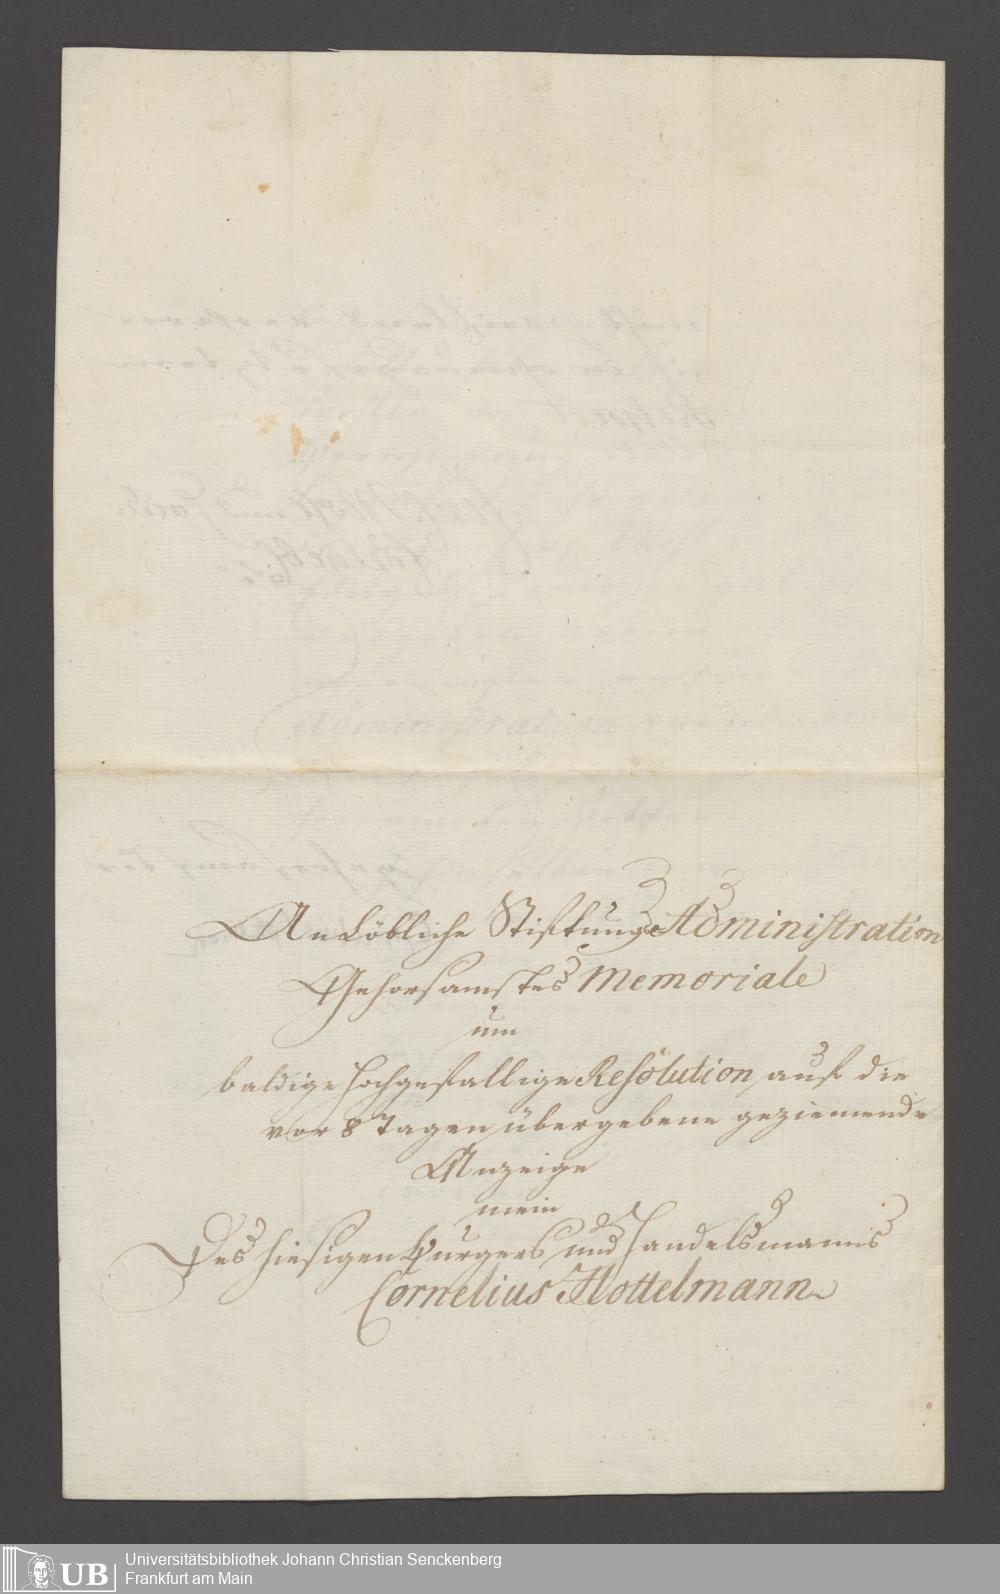 An Löbliche Stiftungs Administration
Gehorsamstes Memoriale
um
baldige hochgefallige Resolution auf die
vor 8 Tagen übergebene geziemende
Anzeige
mein
Des hiesigen Burgers und Handelsmanns
Cornelius Hottelmann
Universitätsbibliothek Johann Christian Senckenberg
Frankfurt am Main
UB